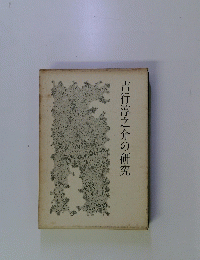 吉行淳之介の研究